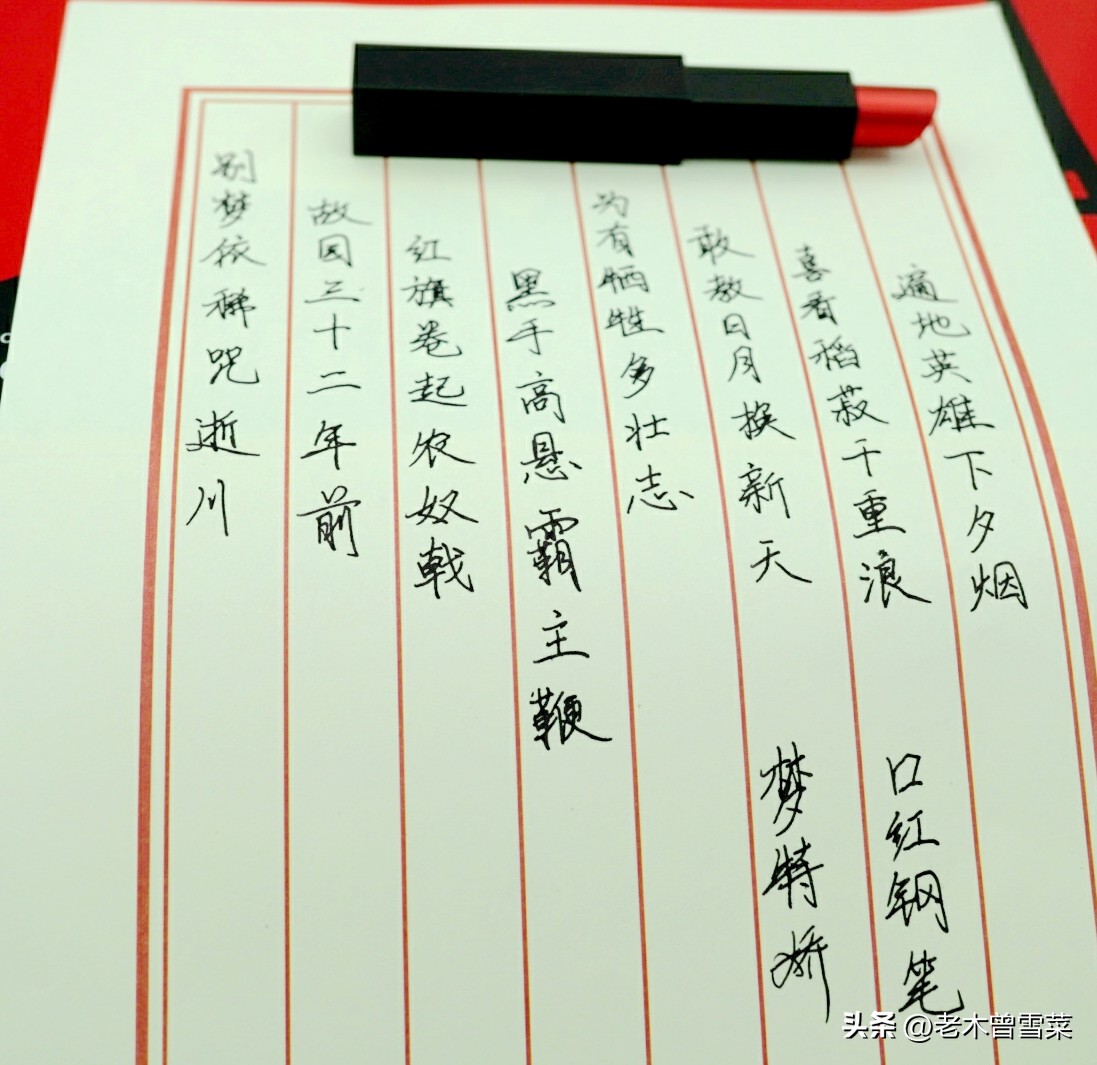 别梦依稀咒逝川
故园三十二年前
红旗卷起农奴戟
黑手高悬霸主鞭
为有牺牲多壮志
敢教日月换新天
喜看稻菽千重浪
遍地英雄下夕烟
梦特娇
口红钢笔
头条 @老木曾雪菜